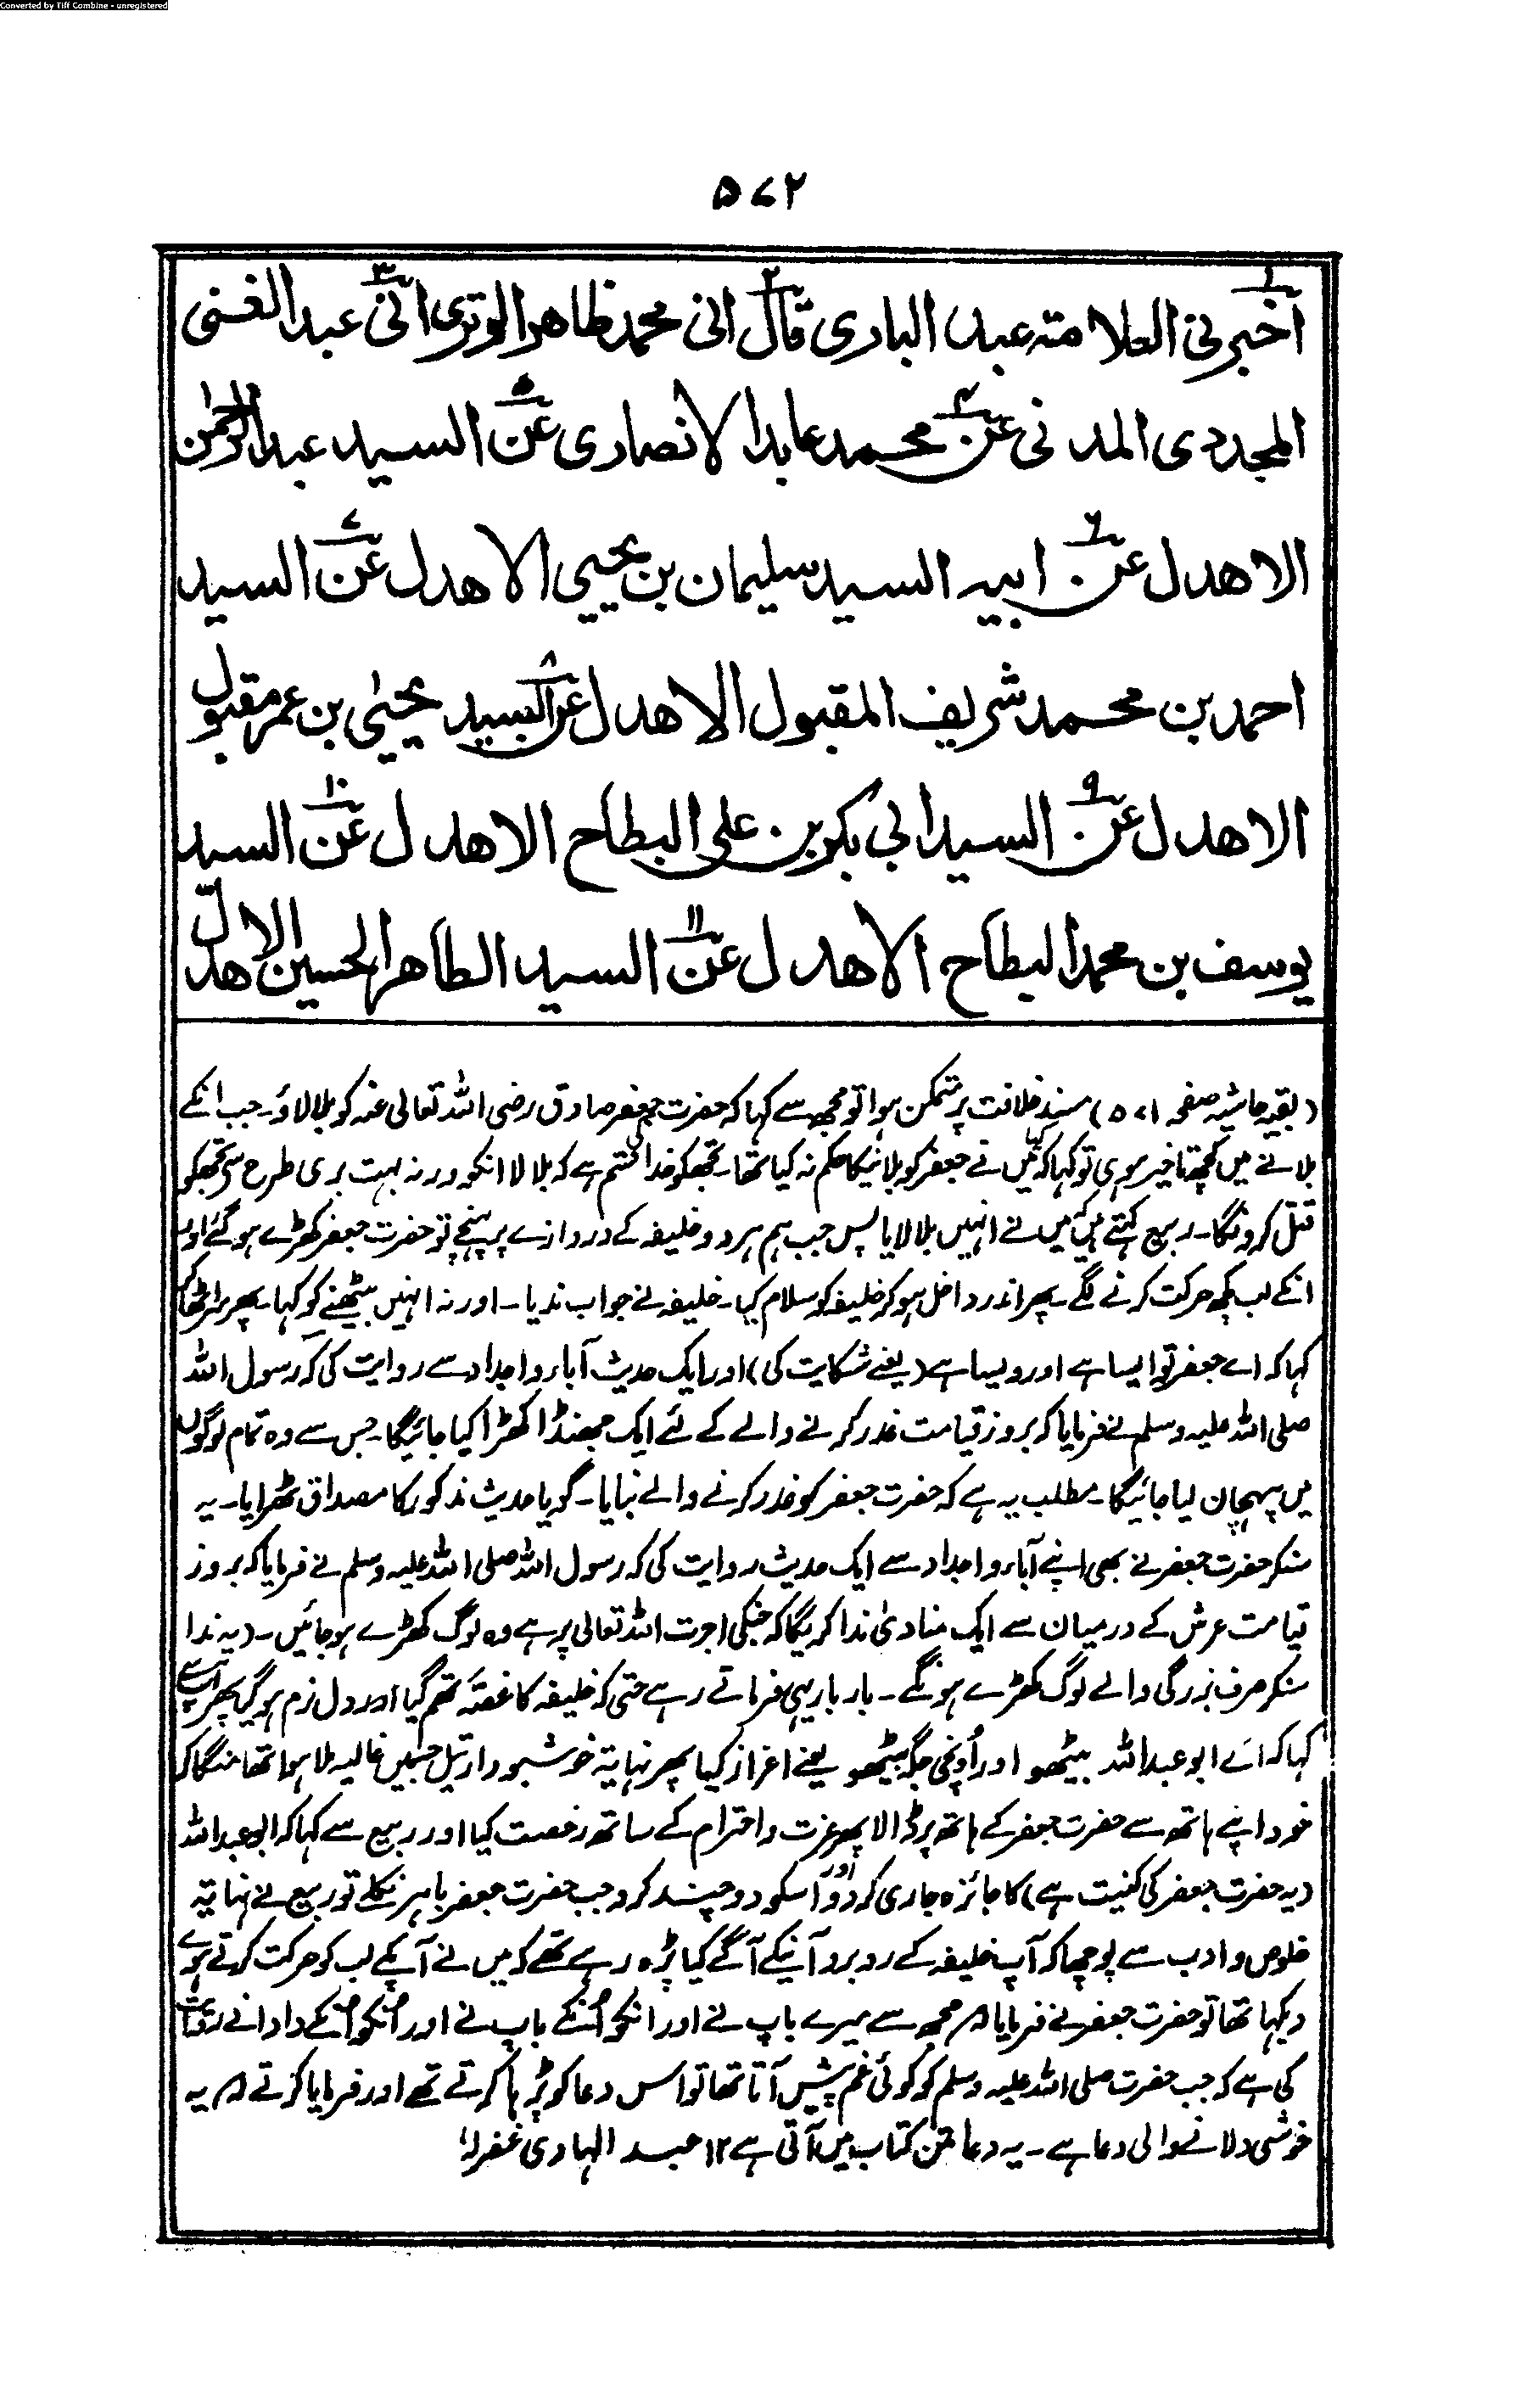 Converted by Tiff Combine - unregistered
۵۷۲
اخبرنی العلامتہ عبد الباری قال انی محمد ظاهر الوتری انی عبد الغنی
المجددی المدنی عن محمد عابد الانصاری عن السید عبد الرحمن
الاهدل عن ابیہ السید سلیمان بن یحیی الاهدل عن السید
احمد بن محمد شریف المقبول الاهدل عن السید یحیی بن عمر مقبول
الاهدل عن السید ابی بکر بن علی البطاح الاهدل عن السید
یوسف بن محمد البطاح الاهدل عن السید الطاهر الحسین الاهدل
(بقیہ حاشیہ صفحہ ۵۷۱) مسند خلافت پر متمکن ہوا تو مجھ سے کہا کہ حضرت جعفر صادق رضی اللہ تعالی عنہ کو بلا لاؤ۔ جب انکے
بلانے میں کچھ تاخیر ہوی تو کہا کہ کیا میں نے جعفر کو بلانیکا حکم نہ کیا تھا۔ تجھکو خدا کی قسم ہے کہ بلا لا انکو ورنہ بہت بری طرح سے تجھکو
قتل کرونگا۔ ربیع کہتے ہیں کہ میں نے انہیں بلا لایا پس جب ہم ہر دو خلیفہ کے دروازے پر پہنچے تو حضرت جعفر کھڑے ہو گئے اور
انکے لب کچھ حرکت کرنے لگے۔ پھر اندر داخل ہو کر خلیفہ کو سلام کیا۔ خلیفہ نے جواب ندیا۔ اور نہ انہیں بیٹھنے کو کہا۔ پھر سر اٹھا کر
کہا کہ اے جعفر تو ایسا ہے اور ویسا ہے (یعنے شکایت کی) اور ایک حدیث آباء و اجداد سے روایت کی کہ رسول اللہ
صلی اللہ علیہ وسلم نے فرمایا کہ بروز قیامت غدر کرنے والے کے لئے ایک جھنڈا کھڑا کیا جائیگا۔ جس سے وہ تمام لوگوں
میں پہچان لیا جائیگا۔ مطلب یہ ہے کہ حضرت جعفر کو غدر کرنے والے بنایا۔ گویا حدیث مذکور کا مصداق ٹھرایا۔ یہ
سنکر حضرت جعفر نے بھی اپنے آباء و اجداد سے ایک حدیث روایت کی کہ رسول اللہ صلی اللہ علیہ وسلم نے فرمایا کہ بروز
قیامت عرش کے درمیان سے ایک منادی ندا کریگا کہ جنکی اجرت اللہ تعالی پر ہے وہ لوگ کھڑے ہو جائیں۔ (یہ ندا
سنکر صرف بزرگی والے لوگ کھڑے ہونگے۔ بار بار یہی فرماتے رہے حتی کہ خلیفہ کا غصہ تھم گیا اور دل نرم ہو گیا پھر اپنے
کہا کہ اے ابو عبد اللہ بیٹھو اور اُونچی جگہ بیٹھو یعنے اعزاز کیا پھر نہایتہ خوشبودار تیل جسمیں غالیہ ملا ہوا تھا منگا کر
خود اپنے ہاتھ سے حضرت جعفر کے ہاتھ پر ڈالا پھر عزت و احترام کے ساتھ رخصت کیا اور ربیع سے کہا کہ ابو عبد اللہ
(یہ حضرت جعفر کی کنیت ہے) کا جائزہ جاری کر دو اور اسکو دوچند کرو جب حضرت جعفر باہر نکلے تو ربیع نے نہایتہ
خلوص و ادب سے پوچھا کہ آپ خلیفہ کے روبرو آنیکے آگے کیا پڑہ رہے تھے کہ میں نے آپکے لب کو حرکت کرتے ہوے
دیکہا تھا تو حضرت جعفر نے فرمایا مجھ سے میرے باپ نے اور انکو اُنکے باپ نے اور اُنکو اُنکے دادا نے روایت
کی ہے کہ جب حضرت صلی اللہ علیہ وسلم کو کوئی غم پیش آتا تھا تو اس دعا کو پڑہا کرتے تھے اور فرمایا کرتے یہ
خوشی دلانے والی دعا ہے۔ یہ دعا متن کتاب میں آتی ہے ۱۲ عبد الہادی غفرلہ